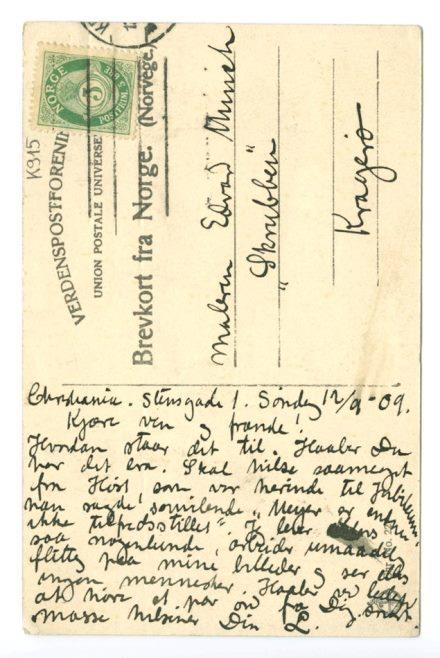 NORGE
5 ØRE
POSTFRIM.
K315
VERDENSPOSTFORENIN
UNION POSTALE UNIVERSE
Brevkort fra Norge. (Norvege.)
Maleren Edvard Munch
"Skrubben"
Kragerø
Christiania. Stensgade 1. Søndag 12/9 - 09.
Kjære ven og frænde!
Hvordan staar det til. Haaber Du
har det bra. Skal hilse saameget
fra Hörst, som var herinde til Jubilæum
han sagde, smilende, "Meyer er
ikke tilfredsstillet". Je lever ellers
saa nogenlunde, arbeider umaadelig
flittig paa mine billeder og ser
ingen mennesker. Haaber ved
at høre et par ord fra Dig snart.
Masse hilsner Din L.